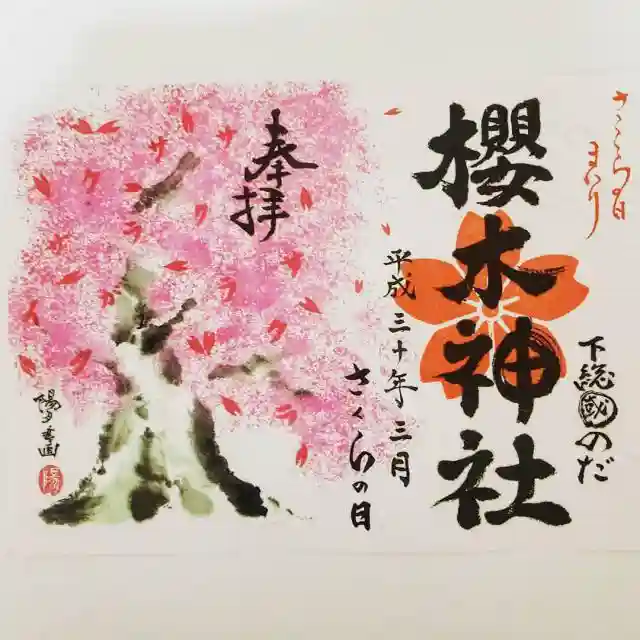 さくらの日
まいり
櫻木神社
下総國のだ
奉拝
平成三十年三月
さくらの日
陽